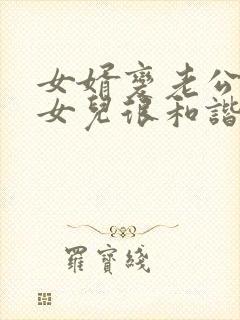 女婿變老公
女兒很和諧
羅寶綫